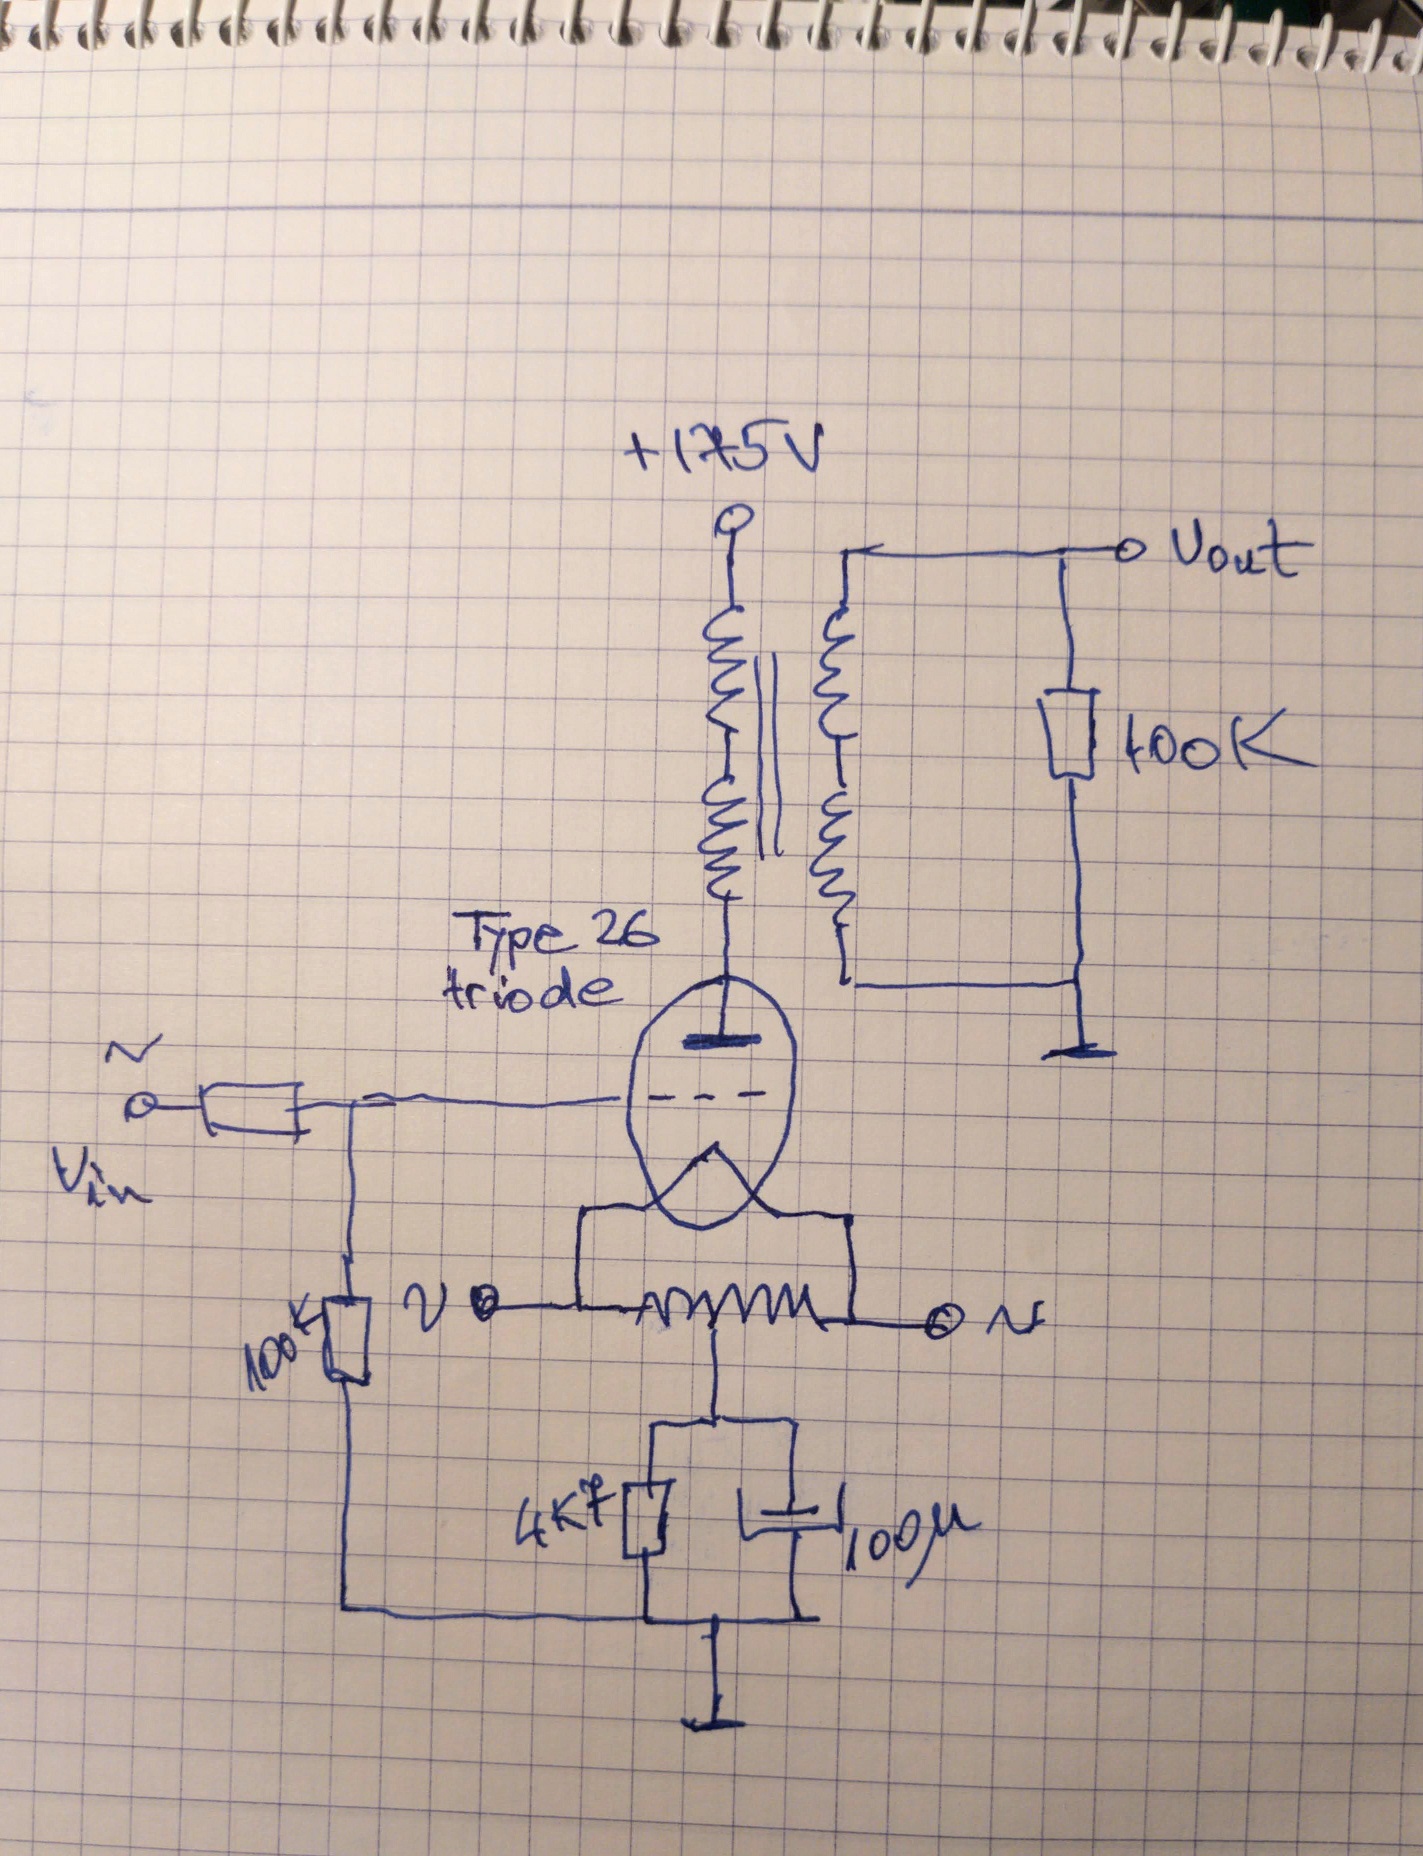 +175V
Vout
400K
Type 26
triode
~
Vin
100K
~
~
4K7
100µ